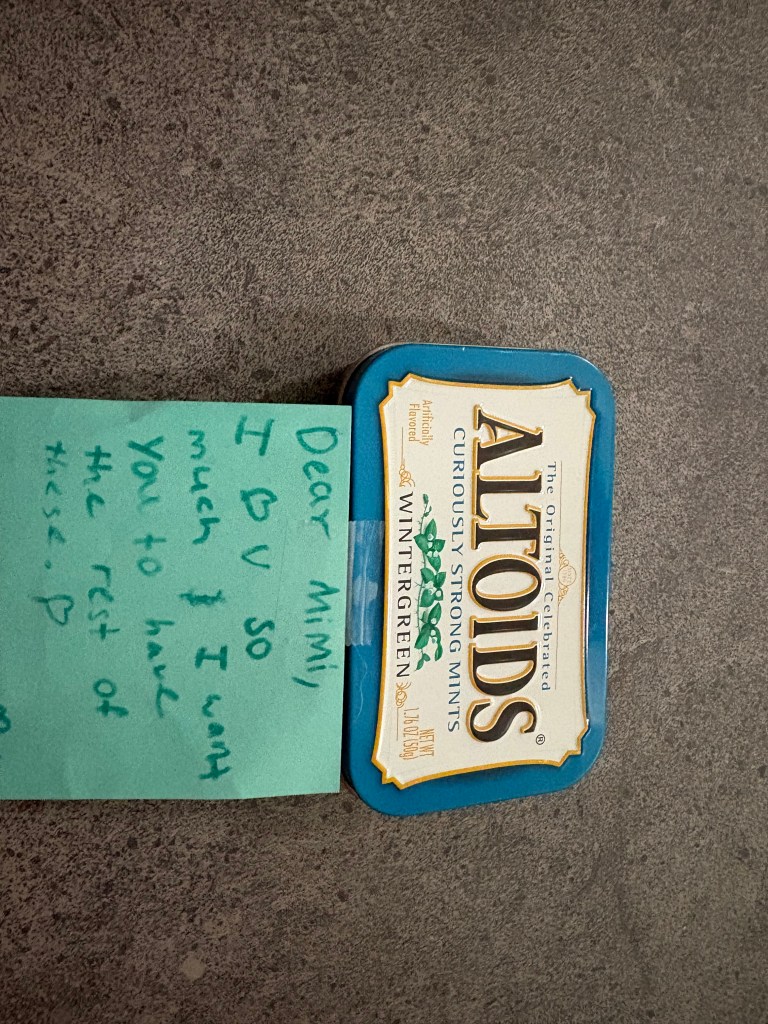 The Original Celebrated
ALTOIDS®
CURIOUSLY STRONG MINTS
Artificially
Flavored
WINTERGREEN
NET WT
1.76 OZ (50g)
Dear Mimi,
I ♡ U so
much I want
you to have
the rest of
these. ♡